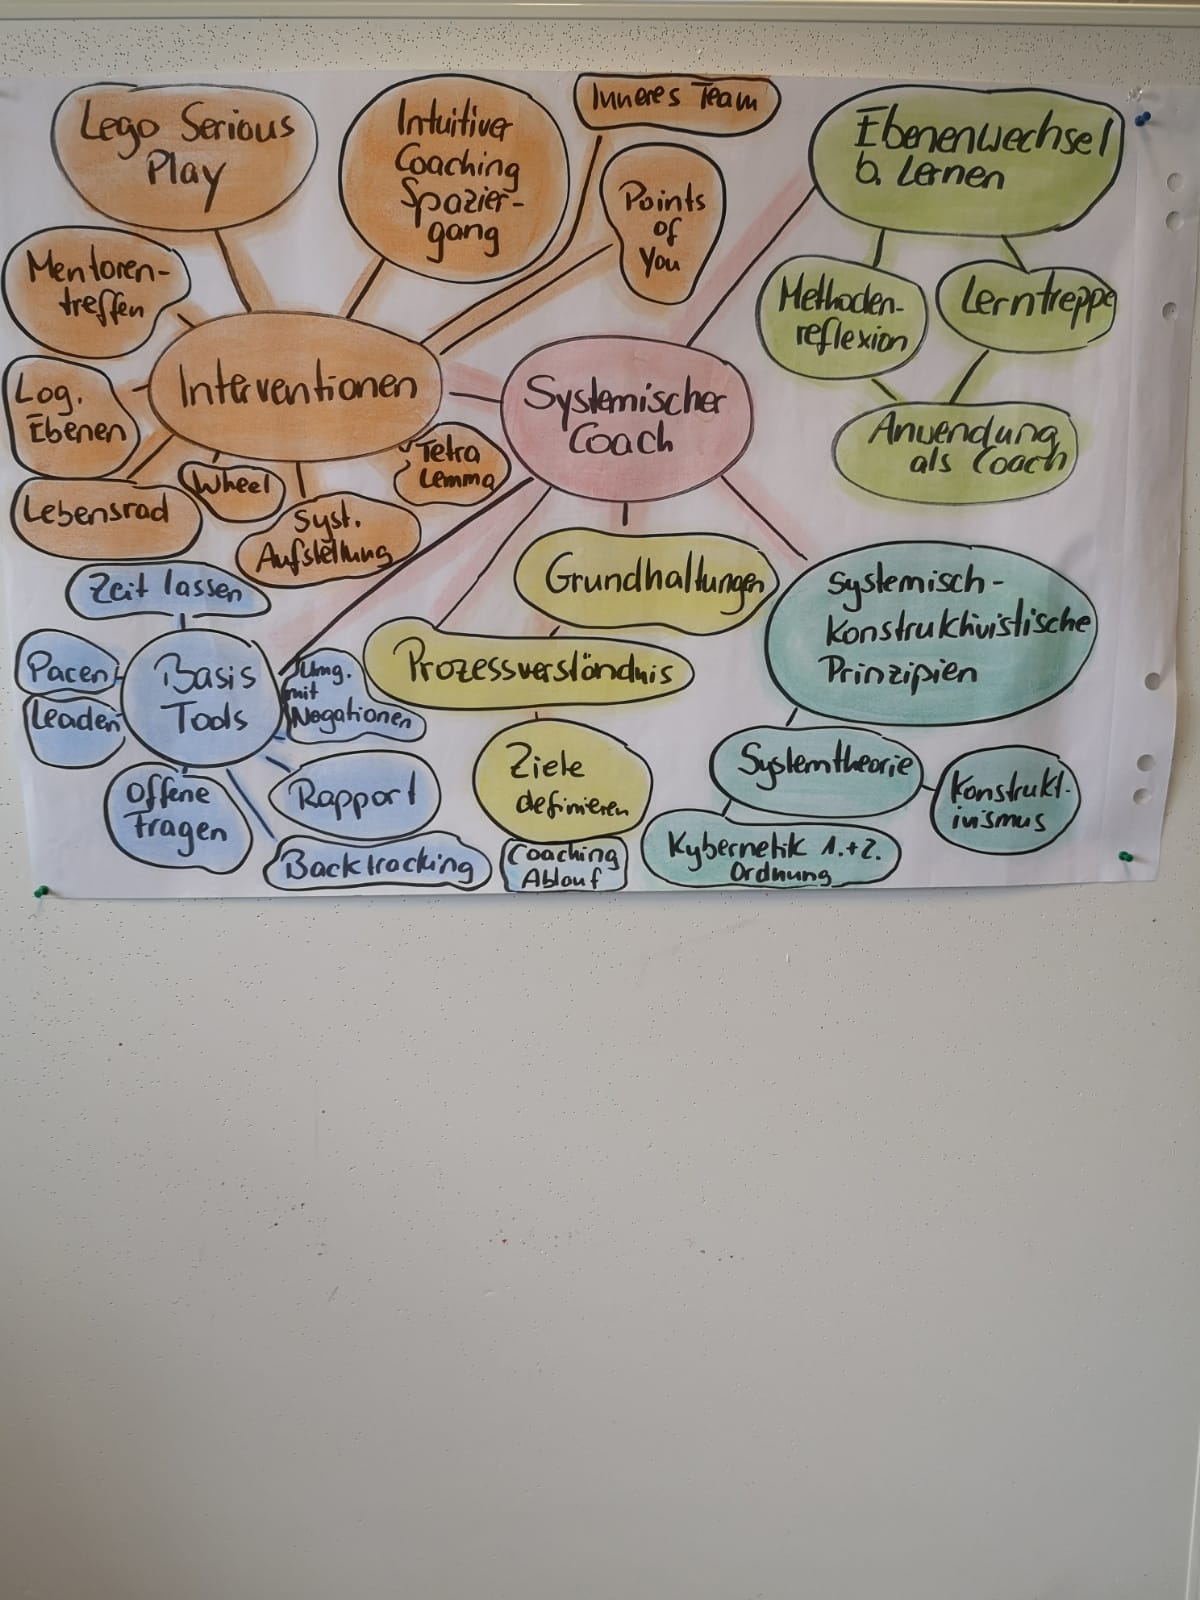 Lego Serious
Play
Intuitiver
Coaching
Spazier-
gang
Inneres Team
Points
of
You
Ebenenwechsel
b. Lernen
Mentoren-
treffen
Methoden-
reflexion
Lerntreppe
Interventionen
Systemischer
Coach
Log.
Ebenen
Anwendung
als Coach
Tetra
Lemma
Wheel
Lebensrad
Syst.
Aufstellung
Grundhaltungen
Systemisch-
Konstruktivistische
Prinzipien
Zeit lassen
Pacen
Leaden
Basis
Tools
Umg.
mit
Negationen
Prozessverständnis
Ziele
definieren
Systemtheorie
Konstrukt-
ivismus
Offene
Fragen
Rapport
Backtracking
Coaching
Ablauf
Kybernetik 1.+2.
Ordnung